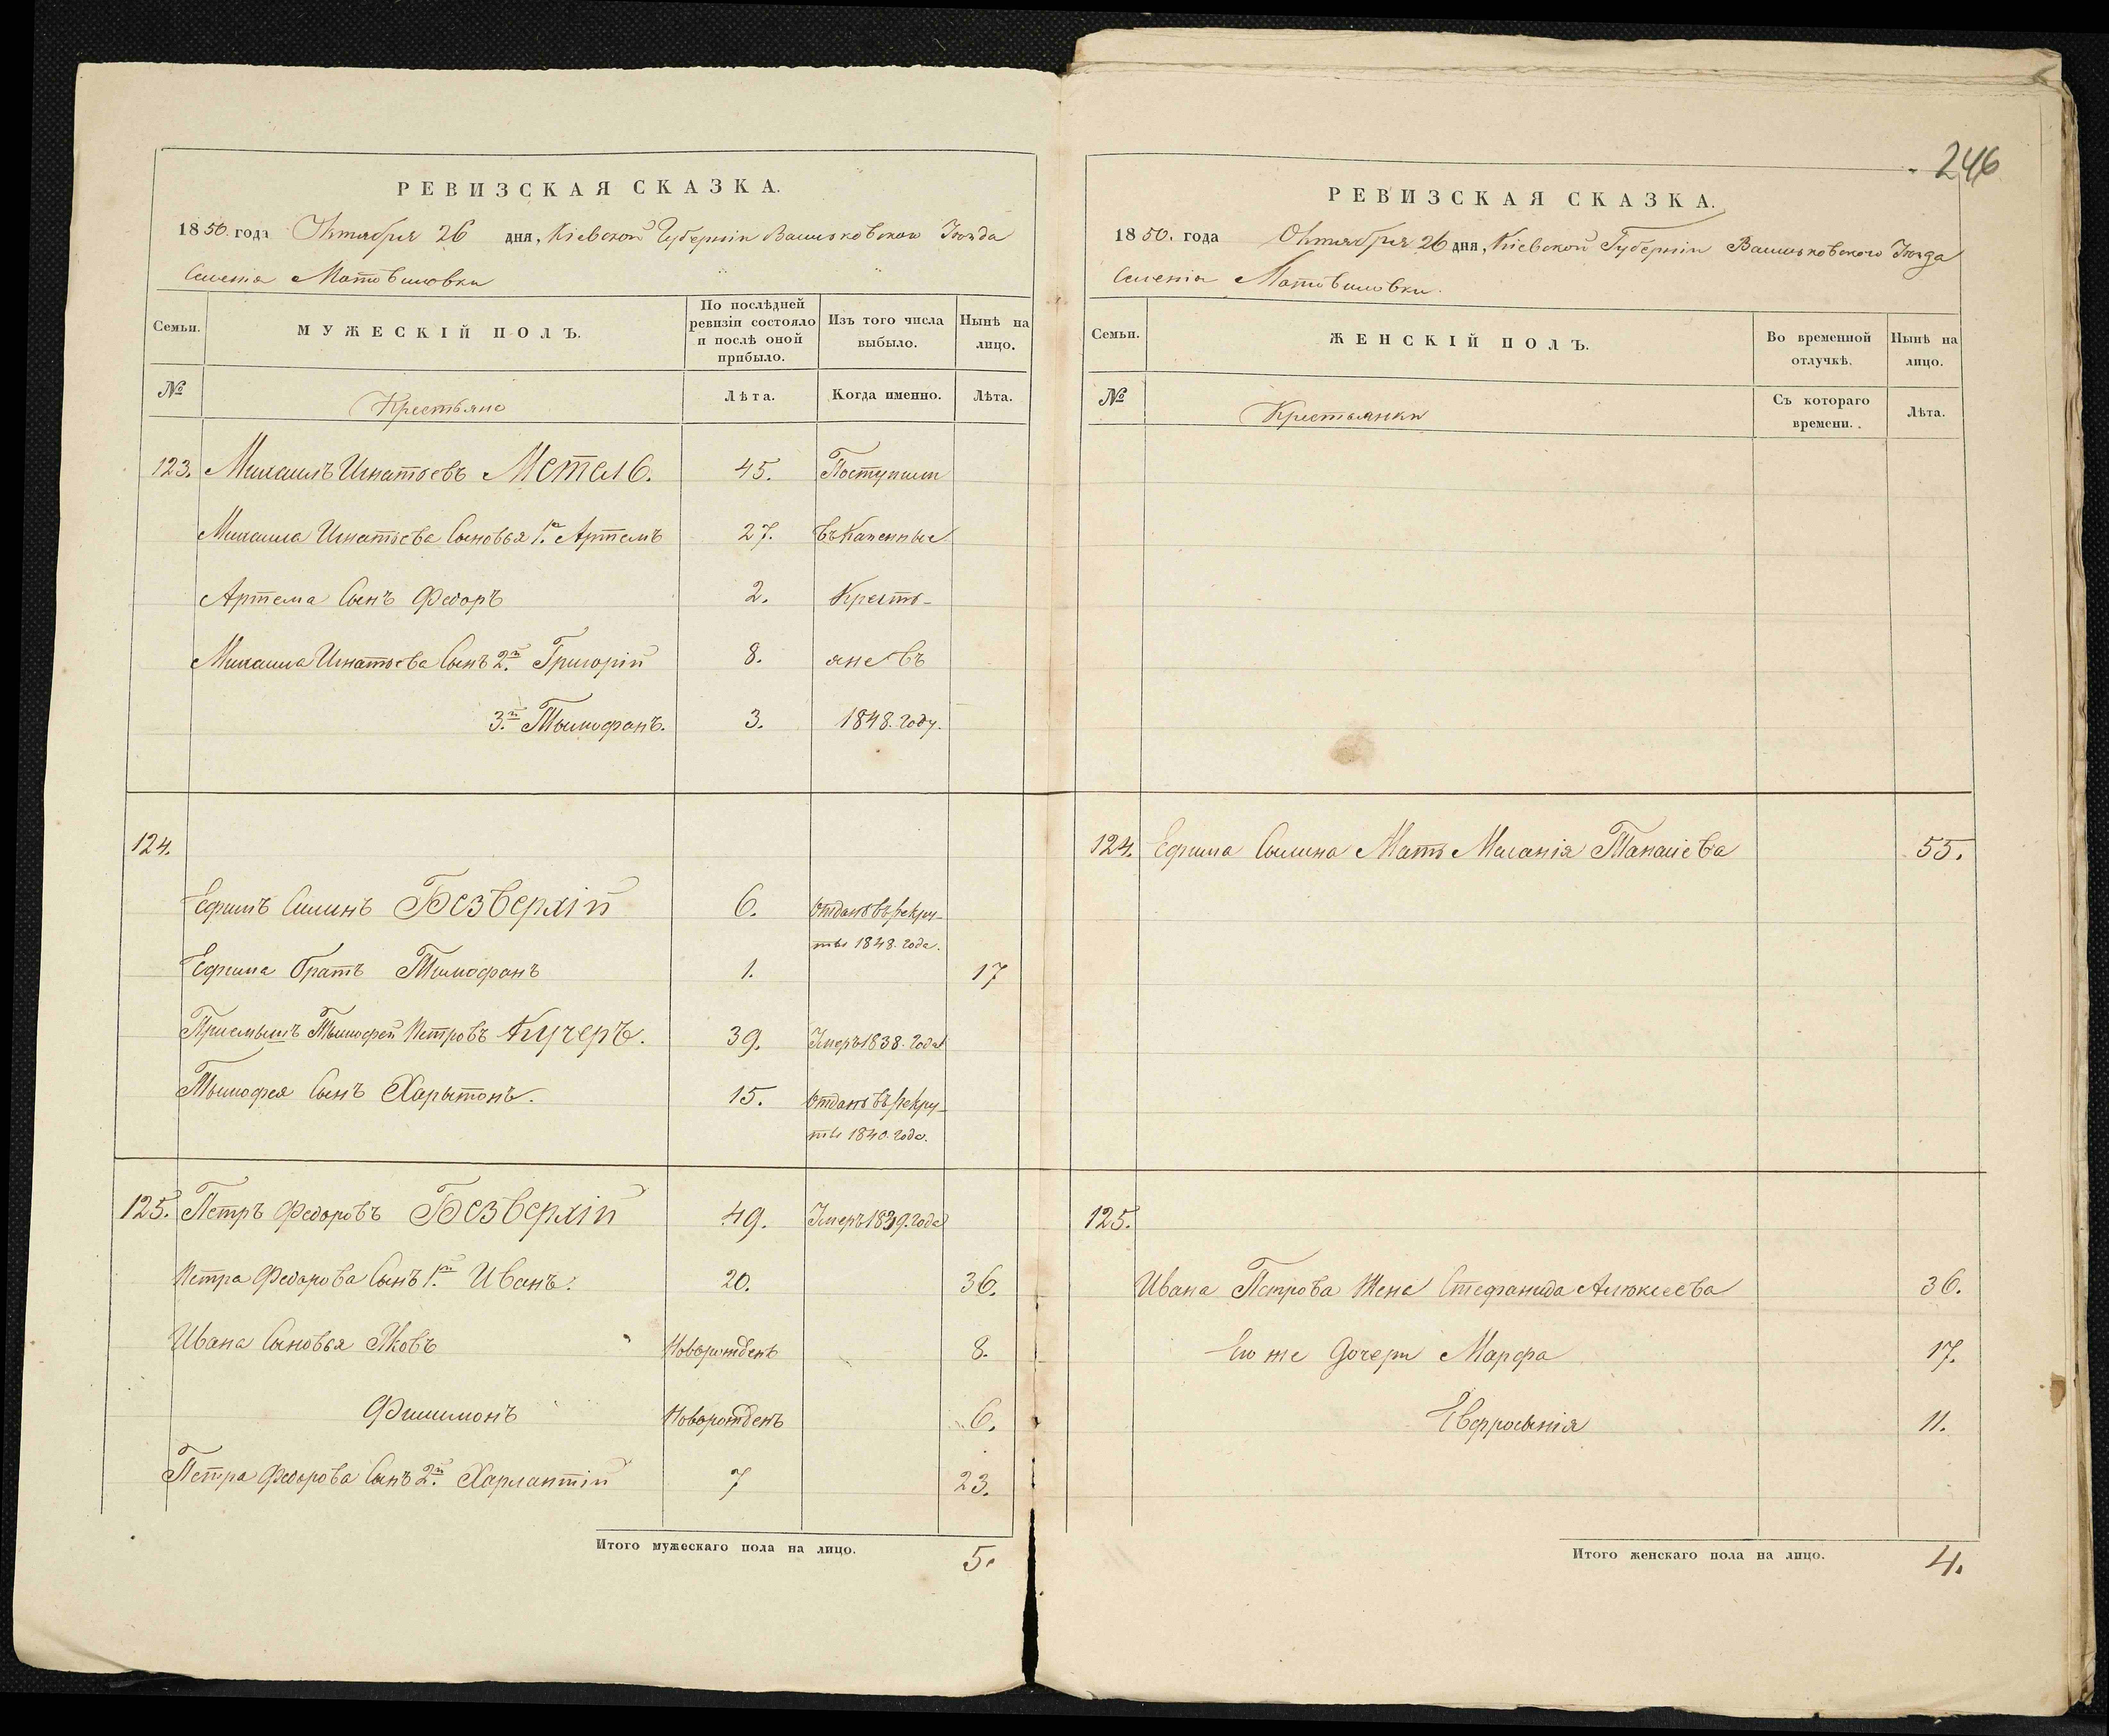 РЕВИЗСКАЯ СКАЗКА.
1850. года Октября 26 дня, Кіевской Губерніи Васильковского Уѣзда
Селенія Мотовиловки
Семьи.
МУЖЕСКІЙ ПОЛЪ.
По послѣдней ревизіи состояло и послѣ оной прибыло.
Изъ того числа выбыло.
Нынѣ на лицо.
№
Крестьяне
Лѣта.
Когда именно.
Лѣта.
123. Михаилъ Игнатьевъ Метель. 45. Поступили
Михаила Игнатьева Сыновья 1й Артемъ 27. въ Казенные
Артема Сынъ Федоръ 2. Кресть-
Михаила Игнатьева Сынъ 2й Григорій 8. яне въ
3й Тымофанъ. 3. 1848. году.
124.
Ефимъ Силинъ Безверхій 6. Отданъ въ рекру-
ты 1848. года.
Ефима братъ Тимофанъ 1. 17
Приемышъ Тымофей Петровъ Кучеръ. 39. Умеръ 1838. года
Тымофея Сынъ Харытонъ. 15. Отданъ въ рекру-
ты 1840. года.
125. Петръ Федоровъ Безверхій 49. Умеръ 1839. года
Петра Федорова Сынъ 1й Иванъ. 20. 36.
Ивана Сыновья Яковъ Новорожденъ 8.
Филимонъ Новорожденъ 6.
Петра Федорова Сынъ 2й Харлантій 7 23.
Итого мужескаго пола на лицо. 5.
246
РЕВИЗСКАЯ СКАЗКА.
1850. года Октября 26 дня, Кіевской Губерніи Васильковского Уѣзда
Селенія Мотовиловки.
Семьи.
ЖЕНСКІЙ ПОЛЪ.
Во временной отлучкѣ.
Нынѣ на лицо.
№
Крестьянки
Съ котораго времени.
Лѣта.
124. Ефима Сылина Мать Меланія 55.
125.
Ивана Петрова Жена Стефанида Алексѣева 36.
Его же Дочери Марфа 17.
Евфросынія 11.
Итого женскаго пола на лицо. 4.